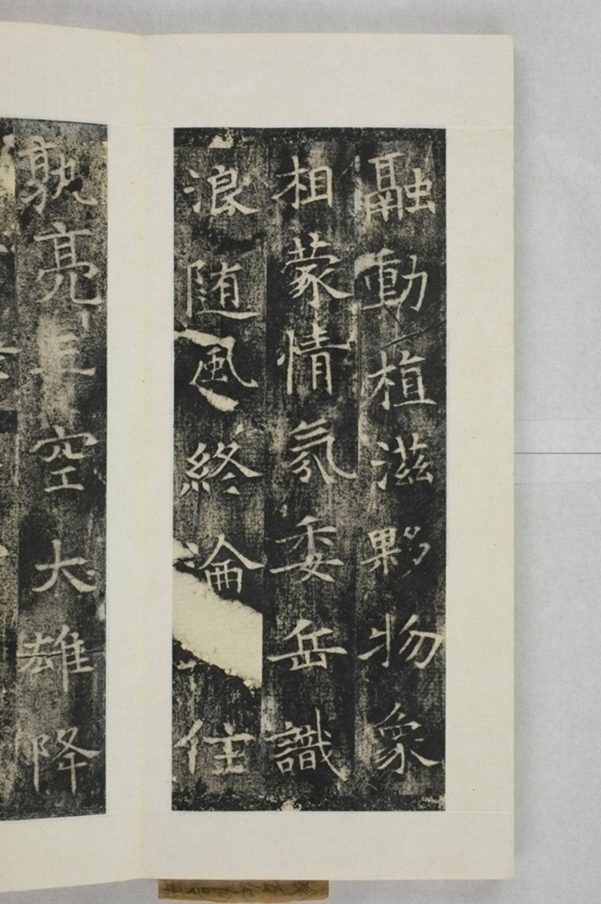 融動植滋夥物象
相蒙情氛委岳識
浪随風終淪住
孰亮三空大雄降